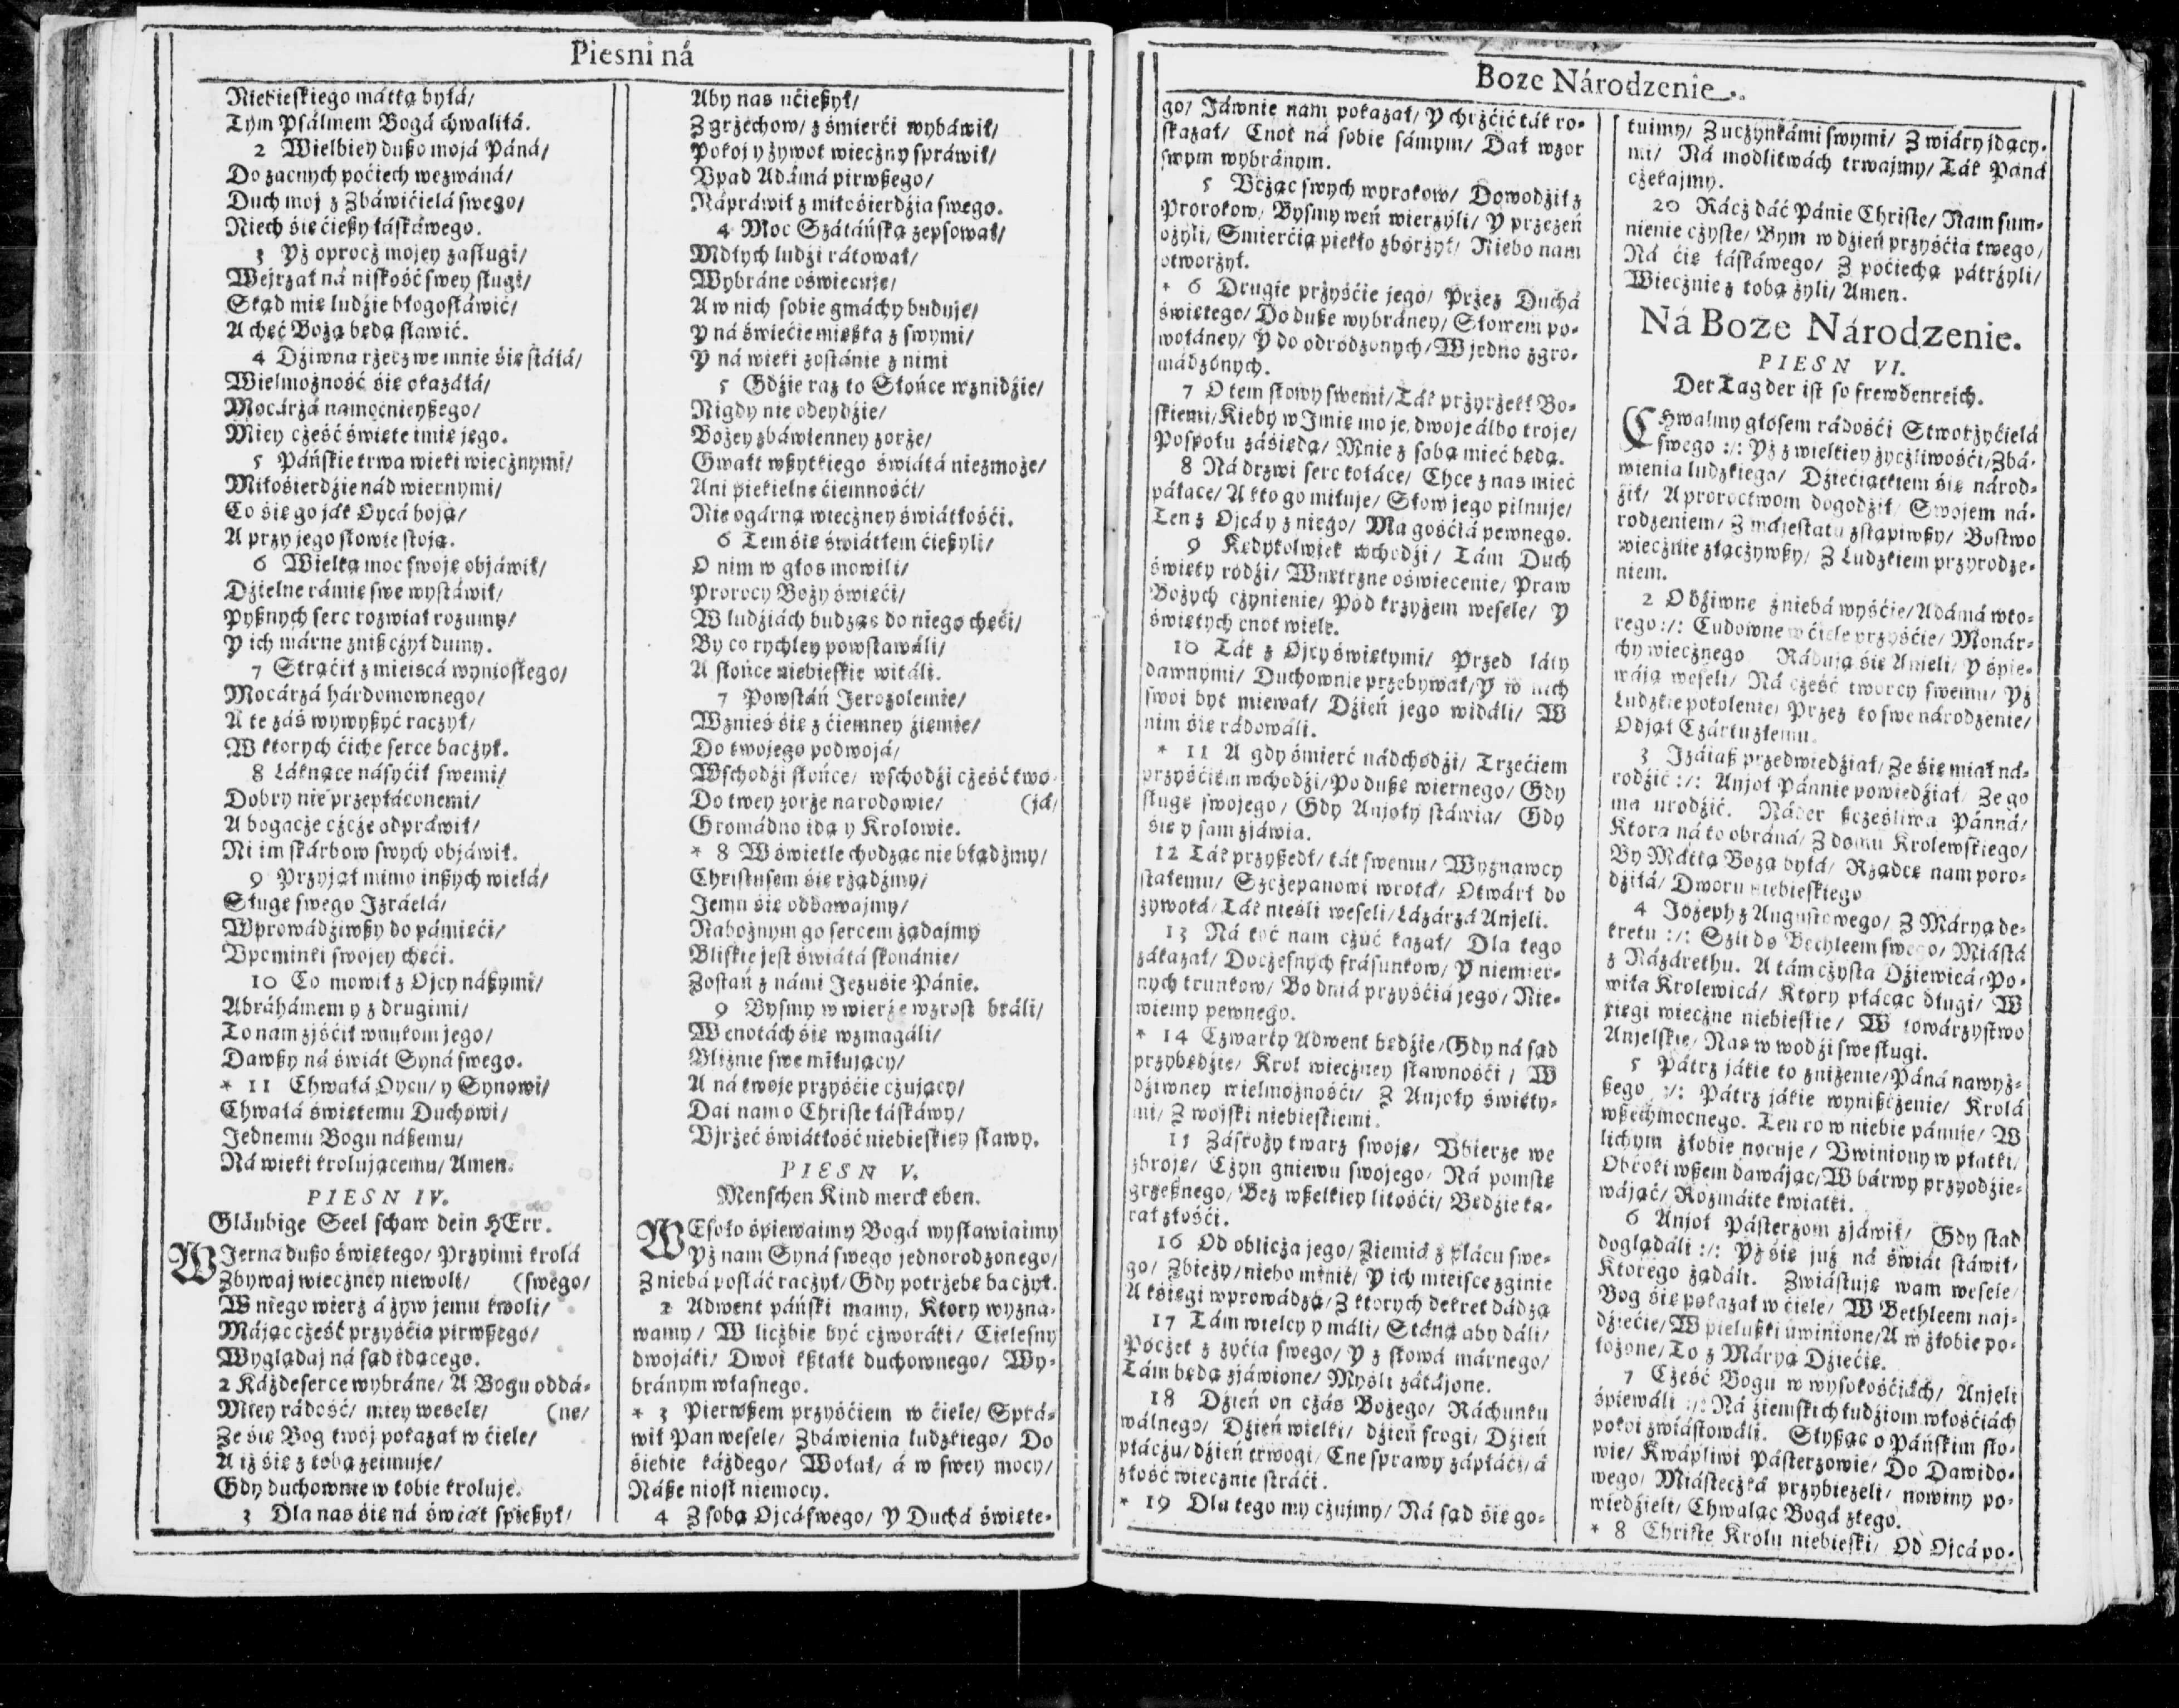 Piesni ná
Niebieskiego mátką byłá/
Tym Psálmem Bogá chwaliłá.
2 Wielbiey dußo mojá Páná/
Do zacnych poćiech wezwáná/
Duch moj z Zbáwićielá swego/
Niech się ćießy łáskáwego.
3 Yż oprocż mojey zasługi/
Wejrzał ná niskość swey sługi/
Skąd mię ludzie błogosłáwić/
A chęć Bożą będą sławić.
4 Dźiwna rżecż we mnie się sstáłá/
Wielmożność się okazáłá/
Mocárzá namocnieyßego/
Miey cżeść święte imię jego.
5 Páńskie trwa wieki wiecżnymi/
Miłośierdźie nád wiernymi/
Co się go ják Oycá boją/
A przy jego słowie stoją.
6 Wielką moc swoję objáwił/
Dźielne rámię swe wystáwił/
Pyßnych serc rozwiał rozumy/
Y ich márne znißcżył dumy.
7 Strąćił z mieiscá wyniosłego/
Mocárzá hárdomownego/
A te záś wywyßyć raczył/
W ktorych ćiche serce bacżył.
8 Láknące násyćił swemi/
Dobry nie przepłáconemi/
A bogacże cżcże odpráwił/
Ni im skárbow swych objáwił.
9 Przyjął mimo inßych wielá/
Sługę swego Izráelá/
Wprowádźiwßy do pámięći/
Vpominki swojey chęći.
10 Co mowił z Ojcy náßymi/
Abráhámem y z drugimi/
To nam zjśćił wnukom jego/
Dawßy ná świát Syná swego.
* 11 Chwałá Oycu/ y Synowi/
Chwałá świętemu Duchowi/
Jednemu Bogu náßemu/
Ná wieki krolującemu/ Amen.
PIESN IV.
Gläubige Seel schaw dein HErr.
WJerna dußo świętego/ Przyimi krolá
Zbywaj wiecżney niewoli/ (swego/
W niego wierz á żyw jemu kwoli/
Májąc cżeść przyśćia pirwßego/
Wyglądaj ná sąd idącego.
2 Káżde serce wybráne/ A Bogu oddá-
Miey rádość/ miey wesele/ (ne/
Ze się Bog twoj pokazał w ćiele/
A iż się z tobą zeimuje/
Gdy duchownie w tobie kroluje.
3 Dla nas się ná świat spießył/
Aby nas ućießył/
Z grzechow/ z śmierći wybáwił/
Pokoj y żywot wiecżny spráwił/
Vpad Adámá pirwßego/
Nápráwił z miłośierdźia swego.
4 Moc Szátáńską zepsował/
Mdłych ludźi rátował/
Wybráne oświecuje/
A w nich sobie gmáchy buduje/
Y ná świećie mießka z swymi/
Y ná wieki zostánie z nimi
5 Gdźie raz to Słońce wznidźie/
Nigdy nie odeydźie/
Bożey zbáwienney zorże/
Gwałt wßytkiego świátá niezmoże/
Ani piekielne ćiemnośći/
Nie ogárną wiecżney świátłośći.
6 Tem się świátłem ćießyli/
O nim w głos mowili/
Prorocy Boży święći/
W ludźiách budząc do niego chęći/
By co rychley powstawáli/
A słońce niebieskie witáli.
7 Powstáń Jerozolemie/
Wznieś się z ćiemney źiemie/
Do twojego podwojá/
Wschodźi słońce/ wschodźi cżeść two-
Do twey zorże narodowie/ (já/
Gromádno idą y Krolowie.
* 8 W świetle chodząc nie błądźmy/
Christusem się rżądźmy/
Jemu się oddawajmy/
Nabożnym go sercem żądajmy
Bliskie jest świátá skonánie/
Zostań z námi Jezusie Pánie.
9 Bysmy w wierże wzrost bráli/
W cnotách się wzmagáli/
Bliźnie swe miłujący/
A ná twoje przyśćie cżujący/
Dai nam o Christe łáskáwy/
Vjrżeć świátłość niebieskiey sławy.
PIESN V.
Menschen Kind merck eben.
WEsoło śpiewaimy Bogá wysławiaimy
Yż nam Syná swego jednorodzonego/
Z niebá posłáć racżył/ Gdy potrżebę bacżył.
2 Adwent páński mamy, Ktory wyzna-
wamy/ W licżbie być cżworáki/ Cielesny
dwojáki/ Dwoi kßtałt duchownego/ Wy-
bránym własnego.
* 3 Pierwßem przyśćiem w ćiele/ Sprá-
wił Pan wesele/ Zbáwienia ludzkiego/ Do
siebie káżdego/ Wołał/ á w swey mocy/
Náße niosł niemocy.
4 Z sobą Ojcá swego/ Y Duchá święte-
Boze Národzenie.
go/ Jáwnie nam pokazał/ Y chrżćić ták ro-
skazał/ Cnot ná sobie sámym/ Dał wzor
swym wybránym.
5 Vcżąc swych wyrokow/ Dowodźił z
Prorokow/ Bysmy weń wierzyli/ Y przezeń
ożyli/ Smierćią piekło zborżył/ Niebo nam
otworżył.
* 6 Drugie przyśćie jego/ Przez Duchá
świętego/ Do duße wybráney/ Słowem po-
wołáney/ Y do odrodzonych/ W jedno zgro-
mádzonych.
7 O tem słowy swemi/ Ták przyrżekł Bo-
skiemi/ Kieby w Jmię moje, dwoje álbo troje/
Pospołu záśiędą/ Mnie z sobą mieć będą.
8 Ná drzwi serc kołáce/ Chce z nas mieć
páłace/ A kto go miłuje/ Słow jego pilnuje/
Ten z Ojcá y z niego/ Ma gośćiá pewnego.
9 Kędykolwiek wchodźi/ Tám Duch
święty rodźi/ Wnętrzne oświecenie/ Praw
Bożych cżynienie/ Pod krzyżem wesele/ Y
świętych cnot wiele.
10 Ták z Ojcy świętymi/ Przed láty
dawnymi/ Duchownie przebywał/ Y w nich
swoi byt miewał/ Dźień jego widáli/ W
nim się rádowáli.
* 11 A gdy śmierć nádchodźi/ Trzećiem
przyśćiem wchodźi/ Po dußę wiernego/ Gdy
sługę swojego/ Gdy Anjoły stáwia/ Gdy
się y sam zjáwia.
12 Ták przyßedł/ ták swemu/ Wyznawcy
stałemu/ Szcżepanowi wrotá/ Otwárł do
żywotá/ Ták nieśli weseli/ Lázárzá Anjeli.
13 Ná toć nam cżuć kazał/ Dla tego
zákazał/ Docżesnych frásunkow/ Y niemier-
nych trunkow/ Bo dniá przyśćiá jego/ Nie-
wiemy pewnego.
* 14 Cżwarty Adwent będźie/ Gdy ná sąd
przybędźie/ Krol wiecżney sławnośći/ W
dźiwney wielmożnośći/ Z Anjoły święty-
mi/ Z wojski niebieskiemi.
15 Zásroży twarz swoję/ Vbierze we
zbroję/ Cżyn gniewu swojego/ Ná pomstę
grzeßnego/ Bez wßelkiey litośći/ Będźie ka-
rał złośći.
16 Od oblicża jego/ Ziemiá z plácu swe-
go/ Zbieży/ niebo minie/ Y ich mieisce zginie
A księgi wprowádzą/ Z ktorych dekret dádzą
17 Tám wielcy y máli/ Stáną aby dáli/
Pocżet z życia swego/ Y z słowá márnego/
Tám będą zjáwione/ Mysli zátájone.
18 Dźień on cżás Bożego/ Ráchunku
wálnego/ Dźień wielki/ dźień srogi/ Dźień
płácżu/ dźień trwogi/ Cne sprawy zápłáći/ á
złość wiecznie stráći.
* 19 Dla tego my cżujmy/ Ná sąd się go-
tuimy/ Z ucżynkámi swymi/ Z wiáry idący-
mi/ Ná modlitwách trwajmy/ Ták Páná
cżekajmy.
20 Rácż dáć Pánie Christe/ Nam sum-
nienie cżyste/ Bym w dźień przyśćia twego/
Ná ćię łáskáwego/ Z poćiechą pátrżyli/
Wiecżnie z tobą żyli/ Amen.
Ná Boze Národzenie.
PIESN VI.
Der Tag der ist so frewdenreich.
CHwalmy głosem rádośći Stworżyćielá
swego :/: Yż z wielkiey życżliwośći/ Zbá-
wienia ludzkiego/ Dźiećiątkiem się národ-
źił/ A proroctwom dogodźił/ Swojem ná-
rodzeniem/ Z májestatu zstąpiwßy/ Bostwo
wiecżnie złącżywßy/ Z Ludzkiem przyrodze-
niem.
2 O dźiwne z niebá wyśćie/ Adámá wto-
rego :/: Cudowne w ćiele przyśćie/ Monár-
chy wiecżnego Rádują się Anjeli/ Y śpie-
wáją weseli/ Ná cżeść tworcy swemu/ Yż
Ludzkie pokolenie/ Przez to swe národzenie/
Odjął Cżártu złemu.
3 Jzáiaß przedwiedźiał/ Ze się miał ná-
rodźić :/: Anjoł Pánnie powiedźiał/ Ze go
ma urodźić. Náder ßcżęśliwa Pánná/
Ktora ná to obráná/ Z domu Krolewskiego/
By Mátką Bożą byłá/ Rządcę nam poro-
dźiłá/ Dworu niebieskiego
4 Jozeph z Augustowego/ Z Máryą de-
kretu :/: Szli do Bethleem swego/ Miástá
z Názárethu. A tám cżysta Dźiewicá/ Po-
wiła Krolewicá/ Ktory płácąc długi/ W
kięgi wieczne niebieskie/ W towárzystwo
Anjelskie/ Nas wwodźi swe sługi.
5 Pátrz jákie to zniżenie/ Páná nawyż-
ßego :/: Pátrz jákie wynißcżenie/ Krolá
wßechmocnego. Ten co w niebie pánuje/ W
lichym żłobie nocuje/ Vwiniony w płatki/
Obroki wßem dawájąc/ W bárwy przyodźie-
wájąć/ Rozmáite kwiatki.
6 Anjoł Pásterzom zjáwił/ Gdy stad
doglądáli :/: Yż się już ná świát stáwił/
Ktorego żądáli. Zwiástuję wam wesele/
Bog się pokazał w ćiele/ W Bethleem naj-
dźiećie/ W pielußki uwinione/ A w żłobie po-
łożone/ To z Máryą Dźiećię.
7 Cżeść Bogu w wysokośćiách/ Anjeli
śpiewáli :/: Ná źiemskich ludźiom włośćiách
pokoi zwiástowáli. Słyßąc o Páńskim sło-
wie/ Kwápliwi Pásterzowie/ Do Dawido-
wego/ Miástecżká przybieżeli/ nowiny po-
wiedźieli/ Chwaląc Bogá złego.
* 8 Christe Krolu niebieski/ Od Ojcá po-